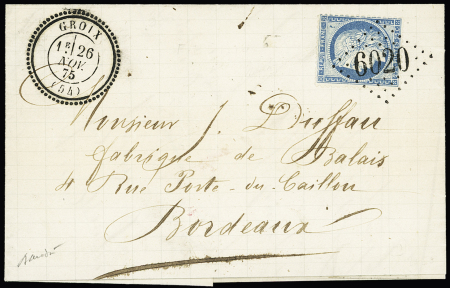 GROIX
1E 26
NOV.
75
(54)
6020
Monsieur J. Duffau
fabrique de Balais
4 Rue Porte-du-Caillou
Bordeaux